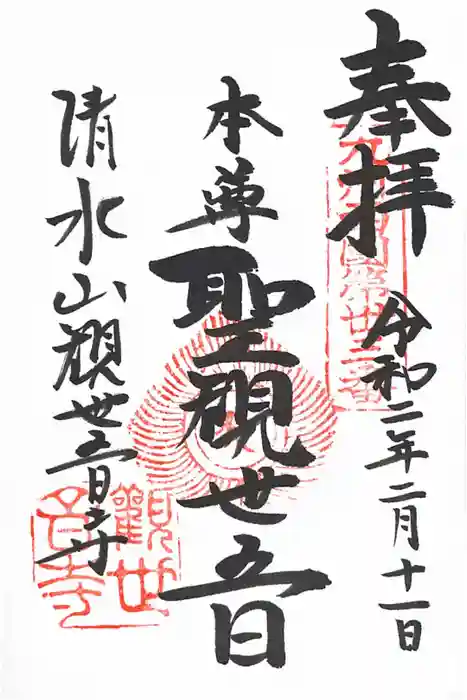 奉拝
令和二年二月十一日
本尊
聖観世音
清水山観世音寺
観世音寺